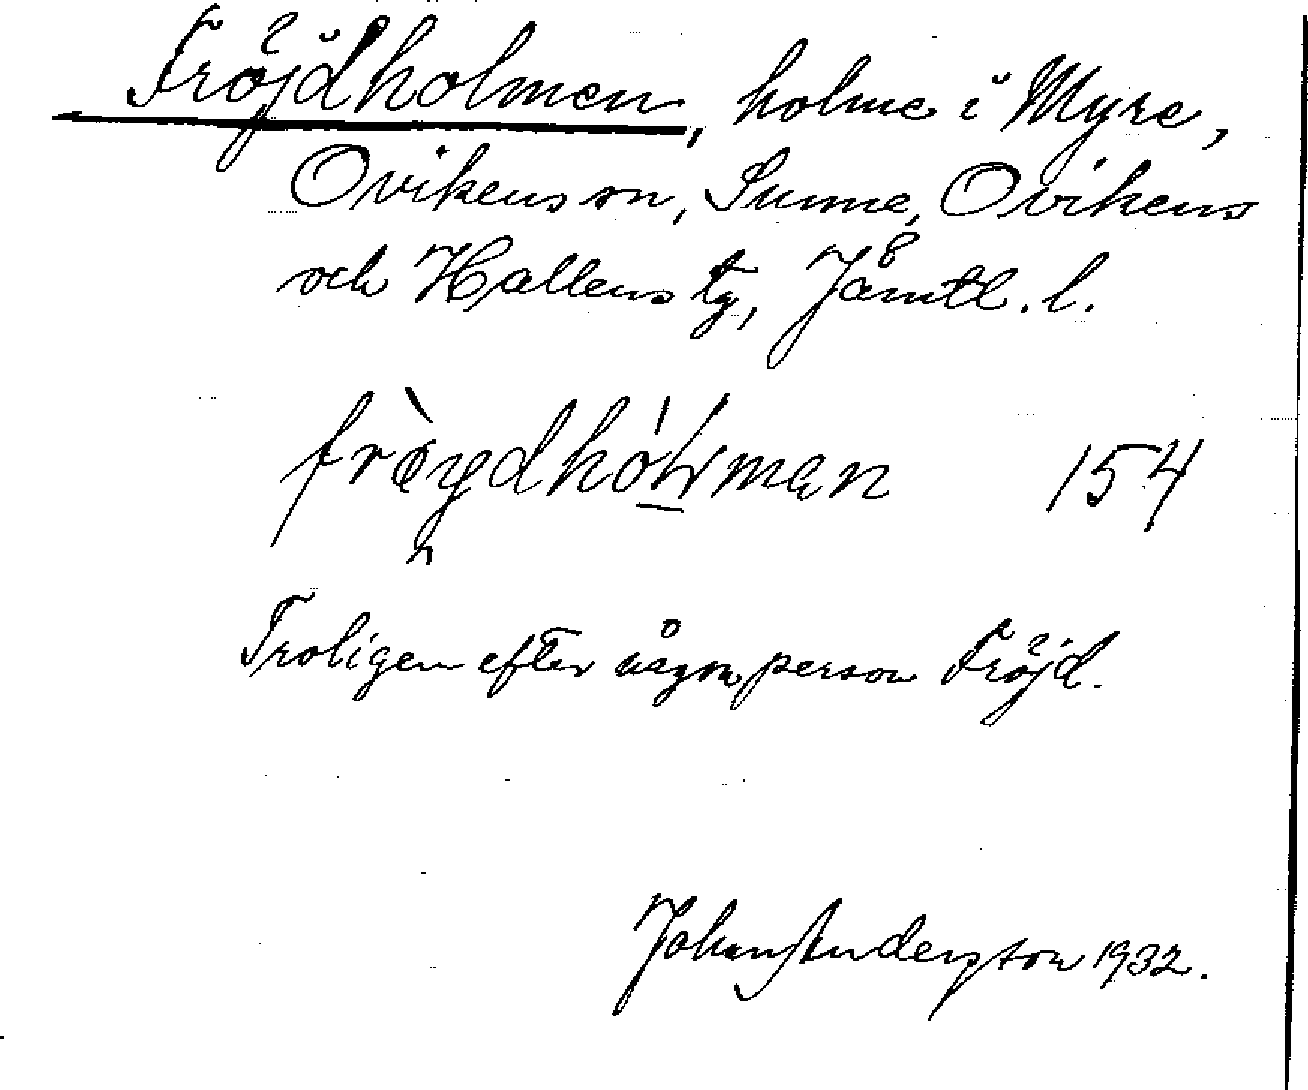 Fröjdholmen, holme i Myre,
Ovikens sn, Sunne, Ovikens
och Hallens tg, Jämtl. l.
154
Troligen efter någon person Fröjd.
Johan Anderston 1932.